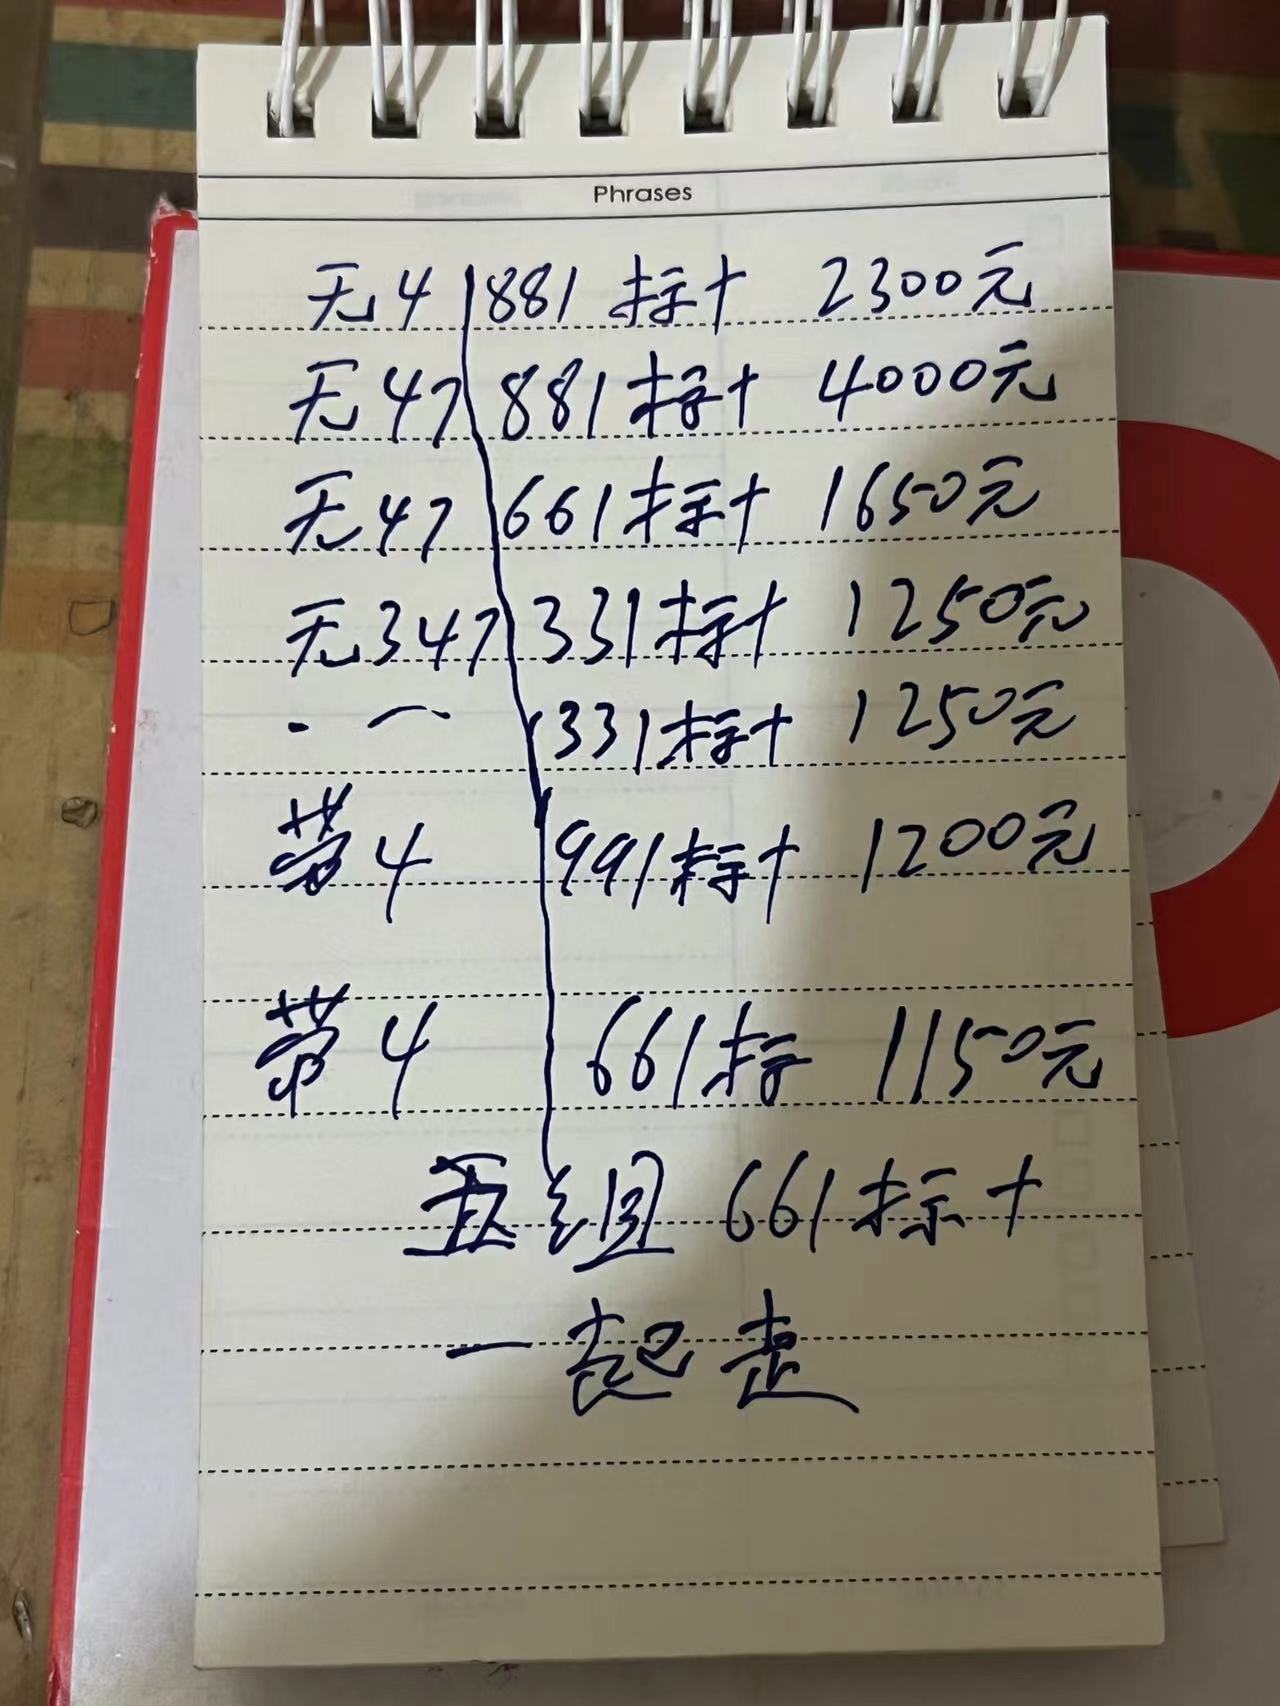 Phrases
无4 881标十 2300元
无47 881标十 4000元
无47 661标十 1650元
无347 331标十 1250元
331标十 1250元
带4 991标十 1200元
带4 661标 1150元
五组 661标十
一起走